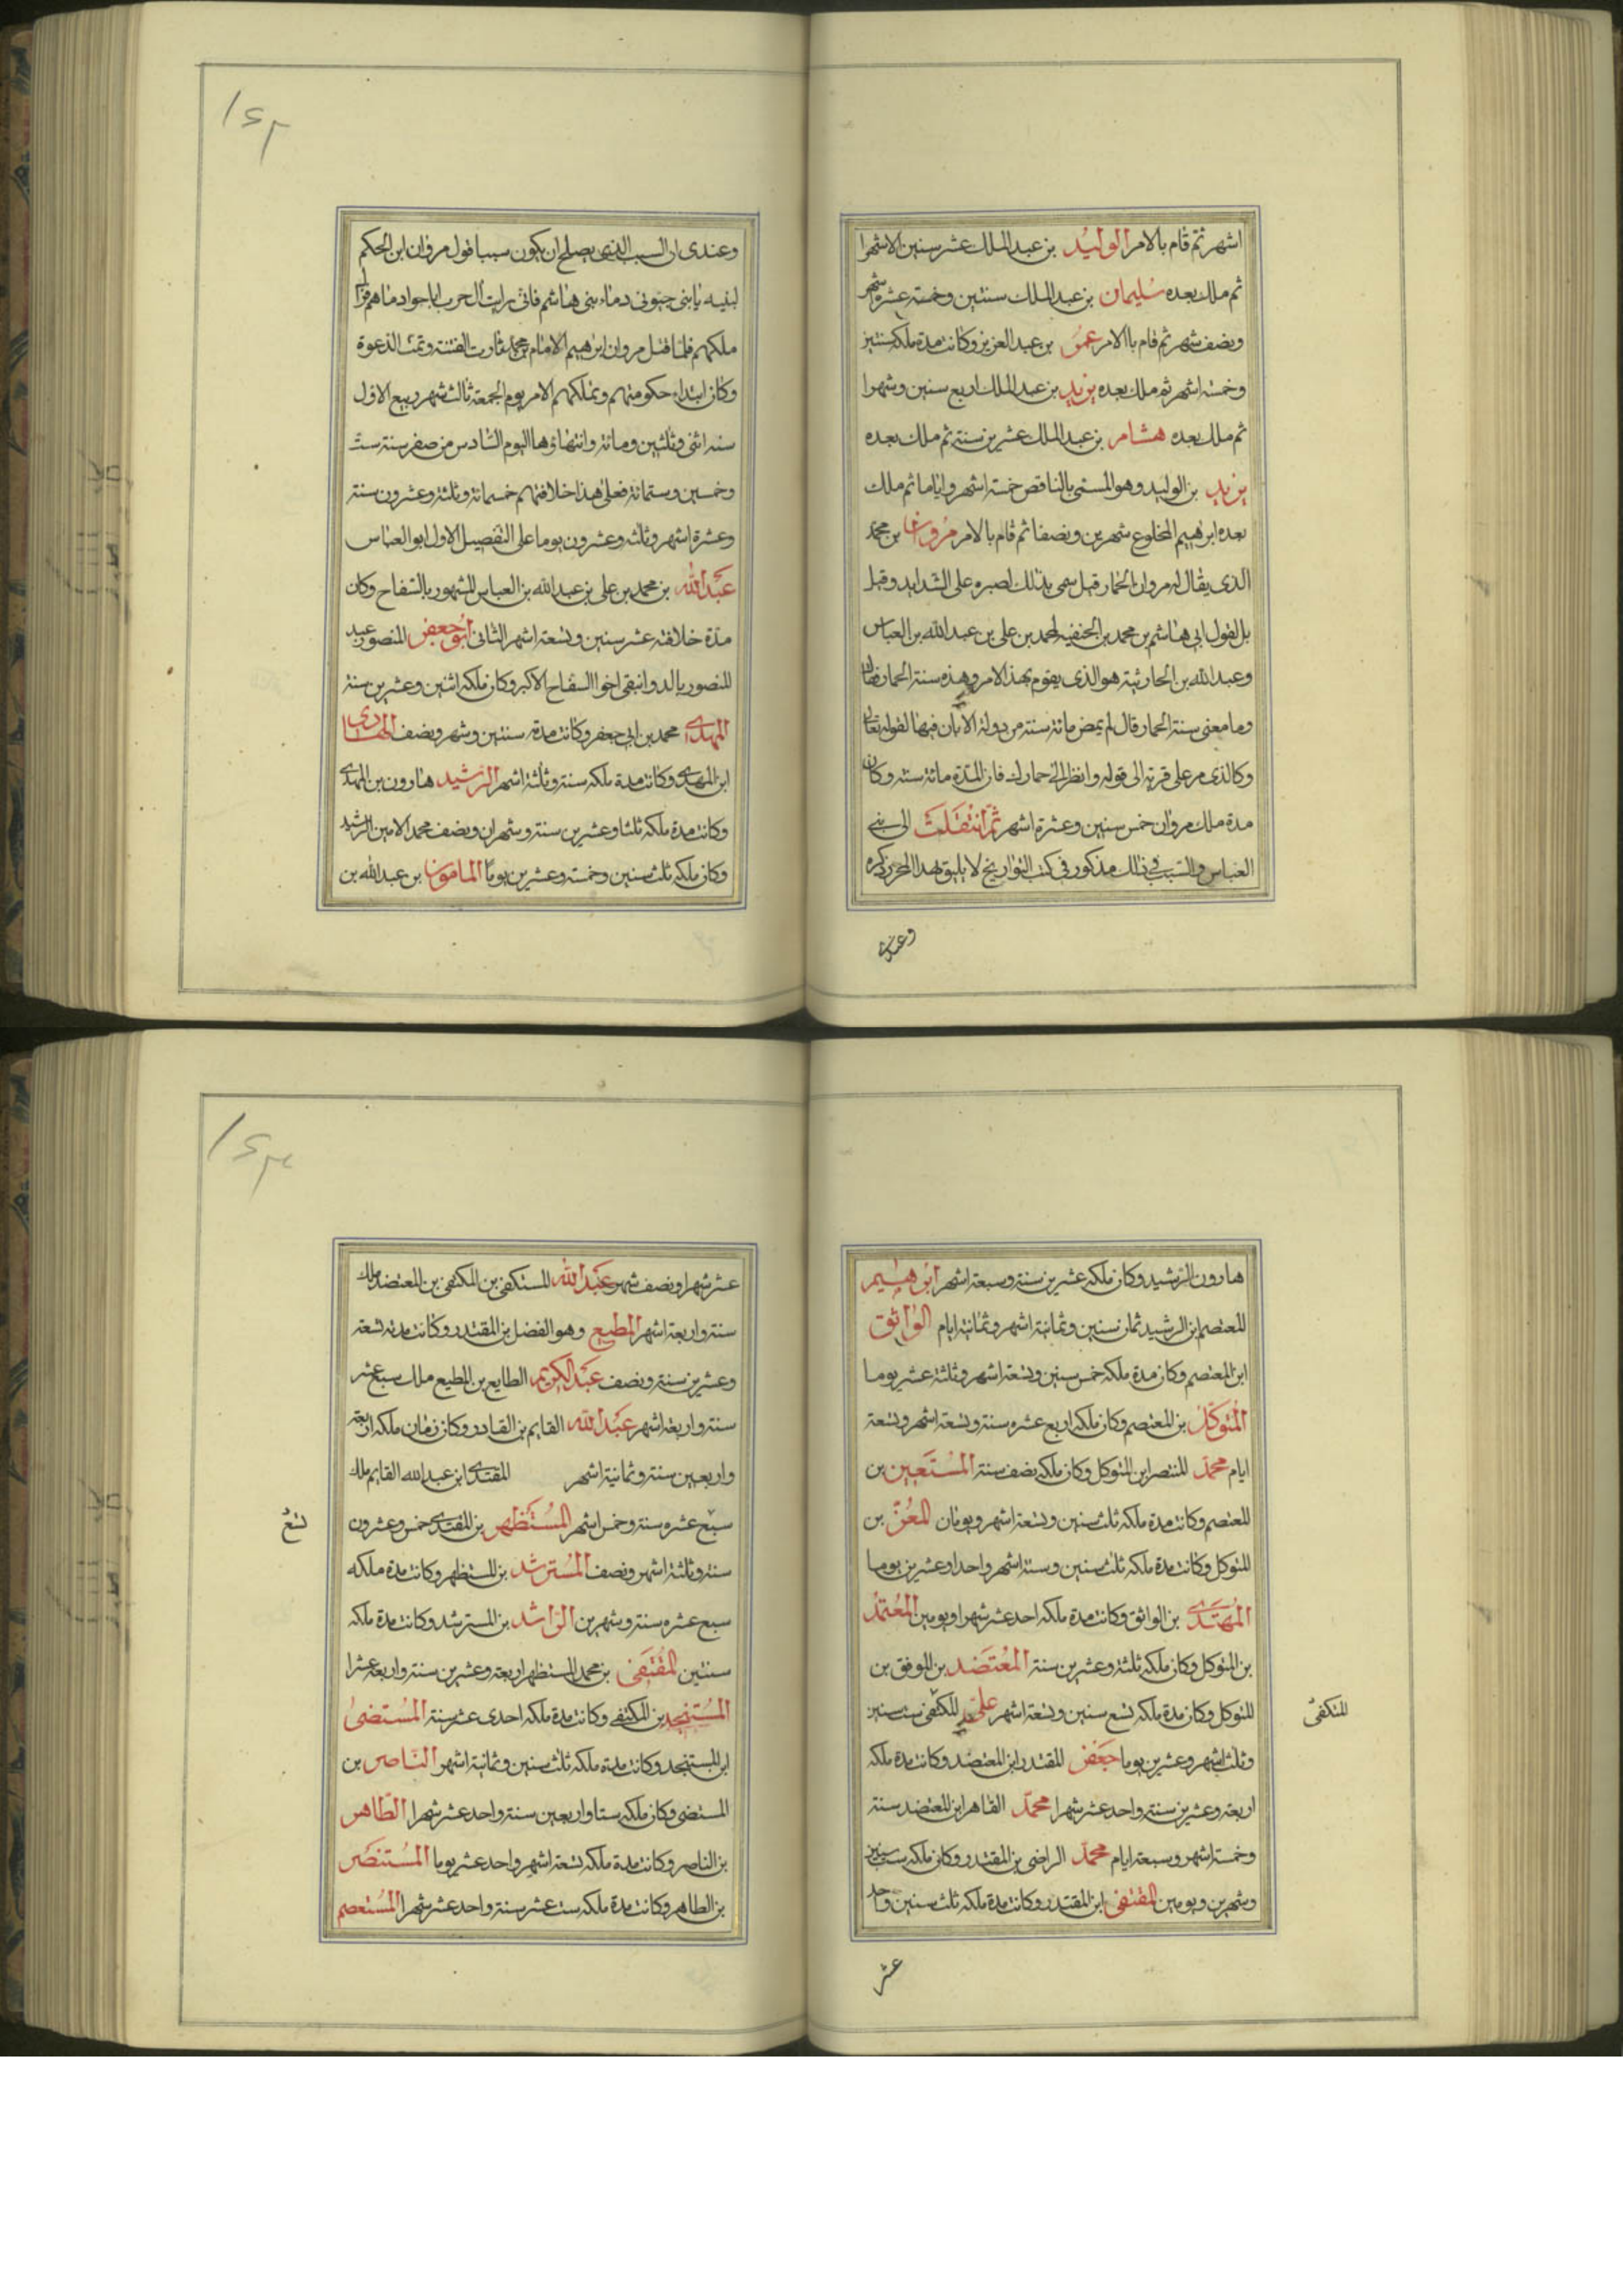 اشهر ثم قام بالامر الوليد بن عبد الملك عشر سنين الا شهرا
ثم ملك بعده سليمان بن عبد الملك سنتين وخمسة عشره شهر
ونصف شهر ثم قام باالامر عمر بن عبد العزيز وكانت مدة ملكه سنتين
وخمسة اشهر ثم ملك بعده يزيد بن عبد الملك اربع سنين وشهرا
ثم ملك بعده هشام بن عبد الملك عشرين سنة ثم ملك بعده
يزيد بن الوليد وهو المسمى بالناقص خمسة اشهر واياما ثم ملك
بعده ابرهيم المخلوع شهرين ونصفا ثم قام بالامر مروان بن محمد
الذى يقال له مروان الحمار قيل سمى بذلك لصبره على الشدايد وقيل
بل لقول ابى هاشم بن محمد بن الحنفيه لمحمد بن على بن عبد الله بن العباس
وعبد الله بن الحارثية هو الذى يقوم بهذ الامر وهذه سنة الحمار فقال
وما معنى سنة الحمار قال لم يمض مائة سنة من دولة الا بان فيها لقوله تعالى
وكالذى مر على قرية الى قوله وانظر الى حمارك فان المدة مائة سنة وكان
مدة ملك مروان خمس سنين وعشرة اشهر ثم انتقلت الى بنى
العباس والسبب فى ذلك مذكور فى كتب التواريخ لا يليق بهذا المحرر ذكره
وعندى
١٢٢
وعندى ان السبب الذى يصلح ان يكون سببا قول مروان ابن الحكم
لبنيه يا بنى جنبونى دماء بنى هاشم فانى رايت ال حرب لما
ملكهم فلما قتل مروان ابرهيم الامام بن محمد ثارت الفتنة وتمت الدعوة
وكان ابتداء حكومتهم وتملكهم الامر يوم الجمعة ثالث شهر ربيع الاول
سنه اثنى وثلثين ومائة وانتهاؤها اليوم السادس من صفر سنة ست
وخمسين وستمائة فعلى هذا خلافتهم خمسمائة وثلثة وعشرون سنة
وعشرة اشهر وثلثه وعشرون يوما على التفصيل الاول ابو العباس
عبد الله بن محمد بن على بن عبد الله بن العباس المشهور بالسفاح وكان
مدة خلافته عشر سنين وتسعة اشهر الثانى ابو جعفر المنصور عبد
المنصور بالدوانيقى اخو السفاح الاكبر وكان ملكه اثنين وعشرين سنة
المهدى محمد بن ابى جعفر وكانت مدته سنتين وشهر ونصف الهادى
ابن المهدى وكانت مدة ملكه سنة وثلثة اشهر الرشيد هارون بن المهدى
وكانت مدة ملكه ثلثا وعشرين سنة وشهران ونصف محمد الامين الرشيد
وكان ملكه ثلث سنين وخمسة وعشرين يوما المامون بن عبد الله بن
هارون الرشيد وكان ملكه عشرين سنة وسبعة اشهر ابرهيم
المعتصم ابن الرشيد ثمان سنين وثمانية اشهر وثمانية ايام الواثق
ابن المعتصم وكان مدة ملكه خمس سنين وتسعة اشهر وثلثة عشر يوما
المتوكل بن المعتصم وكان ملكه اربع عشره سنة وتسعة اشهر وتسعة
ايام محمد المنتصر ابن المتوكل وكان ملكه نصف سنة المستعين بن
المعتصم وكانت مدة ملكه ثلث سنين وتسعة اشهر ويومان المعتز بن
المتوكل وكانت مدة ملكه ثلث سنين وستة اشهر واحدا وعشرين يوما
المهتدى بن الواثق وكانت مدة ملكه احد عشر شهرا ويومين المعتمد
بن المتوكل وكان ملكه ثلثة وعشرين سنة المعتضد بن الموفق بن
المتوكل وكان مدة ملكه تسع سنين وتسعة اشهر على المكتفى ست سنين
المتكفى
وثلث اشهر وعشرين يوما جعفر المقتدر ابن المعتضد وكانت مدة ملكه
اربعة وعشرين سنة واحد عشر شهرا محمد القاهر ابن المعتضد سنة
وخمسة اشهر وسبعة ايام محمد الراضى بن المقتدر وكان ملكه ست سنين
وشهرين ويومين المقتفى ابن المقتدر وكانت مدة ملكه ثلث سنين واحد
عشر
١٢٣
عشر شهرا ونصف شهر عبد الله المستكفى بن المكتفى بن المعتضد ملك
سنة واربعة اشهر المطيع وهو الفضل بن المقتدر وكانت مدته تسعة
وعشرين سنة ونصف عبد الكريم الطايع بن المطيع ملك سبع عشر
سنة واربعة اشهر عبد الله القايم بن القادر وكان زمان ملكه اربعة
واربعين سنة وثمانية اشهر المقتدى ابن عبد الله القايم ملك
سبع عشره سنة وخمس اشهر المستظهر بن المقتدى خمس وعشرون
تسع
سنة وثلثة اشهر ونصف المسترشد بن المستظهر وكانت مدة ملكه
سبع عشره سنة وشهرين الراشد بن المسترشد وكانت مدة ملكه
سنتين المقتفى بن محمد المستظهر اربعة وعشرين سنة واربعة عشرا
المستنجد بن المكتفى وكانت مدة ملكه احدى عشر سنة المستضئ
ابن المستنجد وكانت مدة ملكه ثلث سنين وثمانية اشهر الناصر بن
المستضى وكان ملكه ستا واربعين سنة واحد عشر شهرا الطاهر
بن الناصر وكانت مدة ملكه تسعة اشهر واحد عشر يوما المستنصر
بن الطاهر وكانت مدة ملكه ست عشر سنة واحد عشر شهرا المستعصم